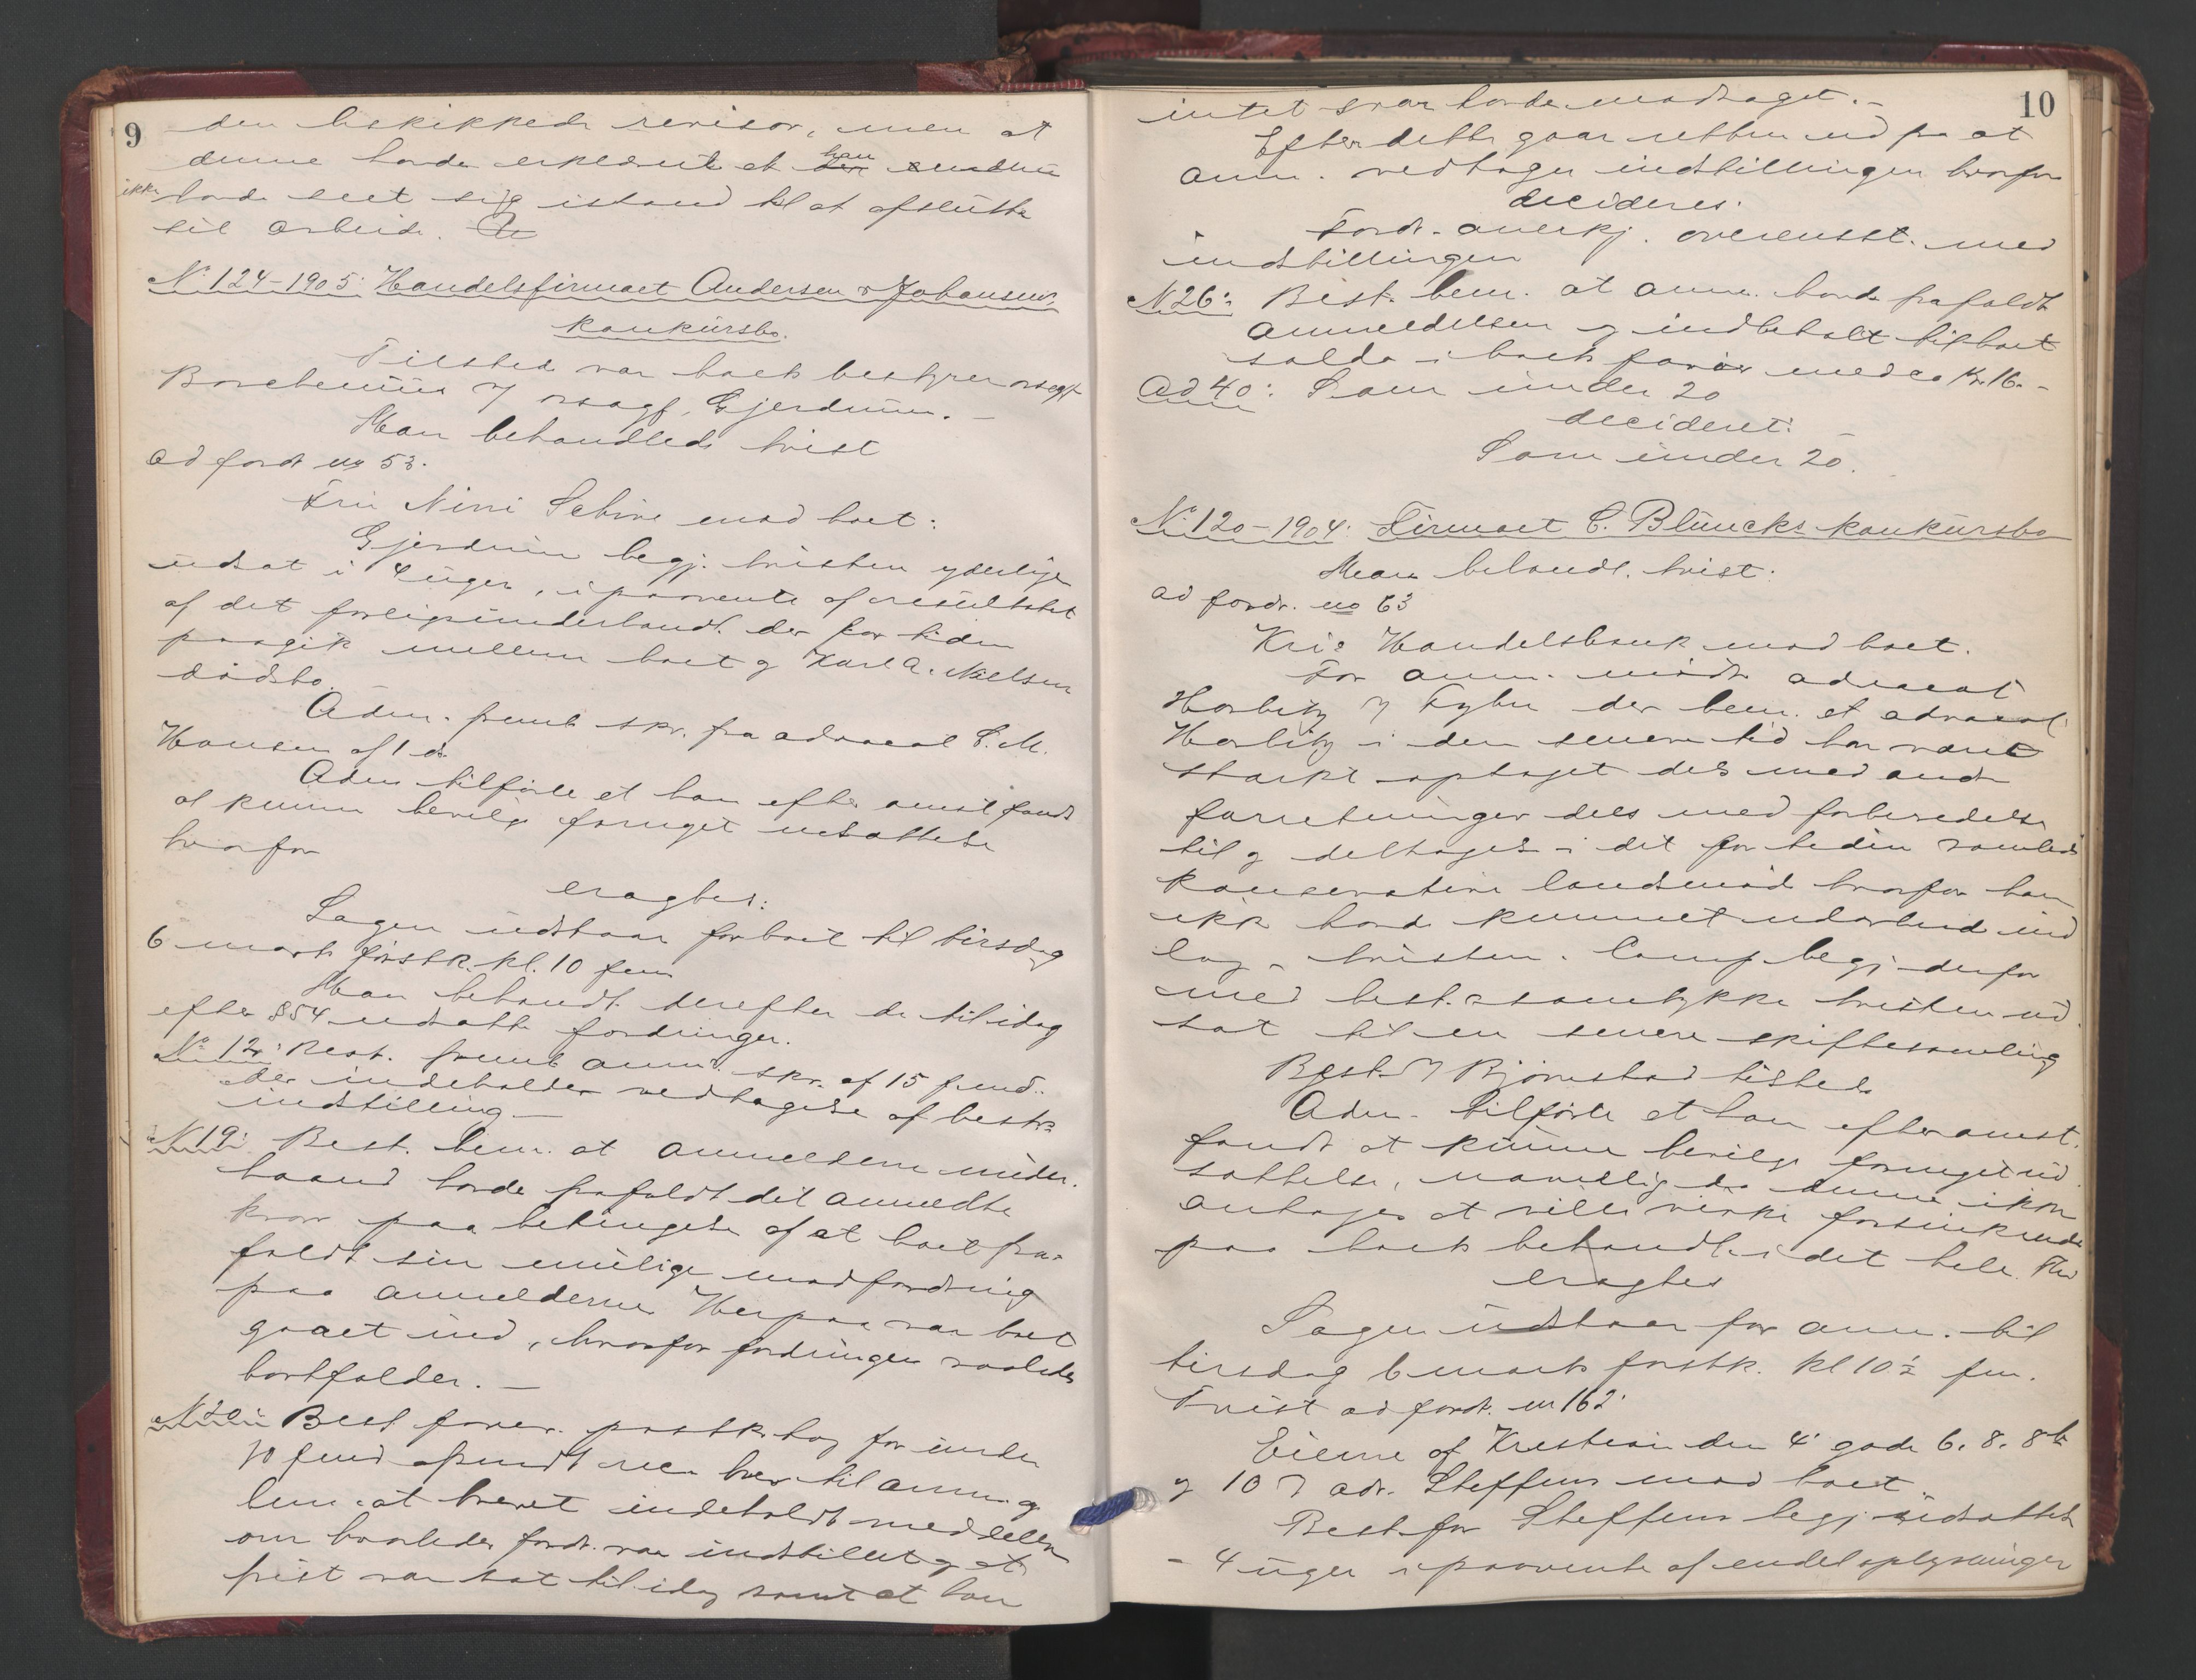 9
den beskikkede revisor, men at
denne havde erklæret at han endnu
ikke havde seet sig istand til at afslutte
sit arbeide.
N: 124-1905: Handelsfirmaet Andersen & Johansens
konkursbo.
Tilstede var boets bestyrer orsagf
Borchenius v/ orsagf. Gjerdrum. –
Man behandlede tvist
ad fordr no 53.
Fru Nini Schive mod boet:
Gjerdrum begj. tvisten yderligere
udsat i 4 uger, i paavente af resultatet
af det forligsunderhandl. der for tiden
paagik mellem boet og Karl A. Nielsens
dødsbo.
Adm. freml skr. fra advocat C. M.
Hansen af 1 ds.
Adm tilførte at han efter omst fandt
at kunne bevilge forangt udsættelse
hvorfor
eragtes:
Sagen udstaar for boet til tirsdag
6 marts førstk. kl. 10 fm
Man behandl. derefter de til idag
efter § 54 udsatte fordringer.
N: 12: Best. freml anm. skr. af 15 f.md.
der indeholder vedtagelse af bests
indstilling –
N 19: Best. bem. at anmelderne under
haand havde frafaldt det anmeldte
krav paa betingelse af at boet fra-
faldt sin mulige modfordring
paa anmelderne Herpaa var boet
gaaet ind, hvorfor fordringen saaledes
bortfalder. –
N 20: Best. frem. postkvitt for under
10 f.md afsendt rec. brev til anm. og
bem. at brevet indeholdt meddelelse
om hvorledes fordr. var indstillet og at
frist var sat til idag samt at han
10
intet svar havde modtaget. –
Efter dette gaar retten ud fra at
anm. vedtager indstillingen hvorfor
decideres:
Fordr. anerkj. overensst. med
indstillingen
N 26: Best. bem. at anm. havde frafaldt
anmeldelsen og indbetalt til boet
saldo i boets favør med ca Kr. 16. –
Ad 40: Som under 20
decideret:
Som under 20.
N: 120-1904: Firmaet C. Blüncks konkursbo
Man behandl. tvist:
ad fordr. no 63
Kria Handelsbank mod boet.
For anm. mødte advocat
Horbitz v/ Lyhn der bem. at advocat
Horbitz i den senere tid har været
stærkt optaget dels med andre
forretninger dels med forberedelse
til og deltagelse i det for tiden samlede
konservative landsmøde hvorfor han
ikke havde kunnet udarbeide ind
læg i tvisten. Comp begj. derfor
med best.s samtykke tvisten ud
sat til en senere skiftesamling
Best. v/ Bjørnstad tilstede
Adm. tilførte at han efter omst.
fandt at kunne bevilge foranget ud
sættelse, navnlig da denne ikke
antages at ville virke forsinkende
paa boets behandl. i det hele. Thi
eragtes
Sagen udstaar for anm. til
tirsdag 6 marts førstk. kl 10½ fm.
Tvist ad fordr. no 162:
Eierne af Kristian den 4' gade 6. 8. 8b
og 10 v/ adv. Steffens mod boet.
Best. for Steffens begj. udsættelse
i 4 uger i paavente af endel oplysninger